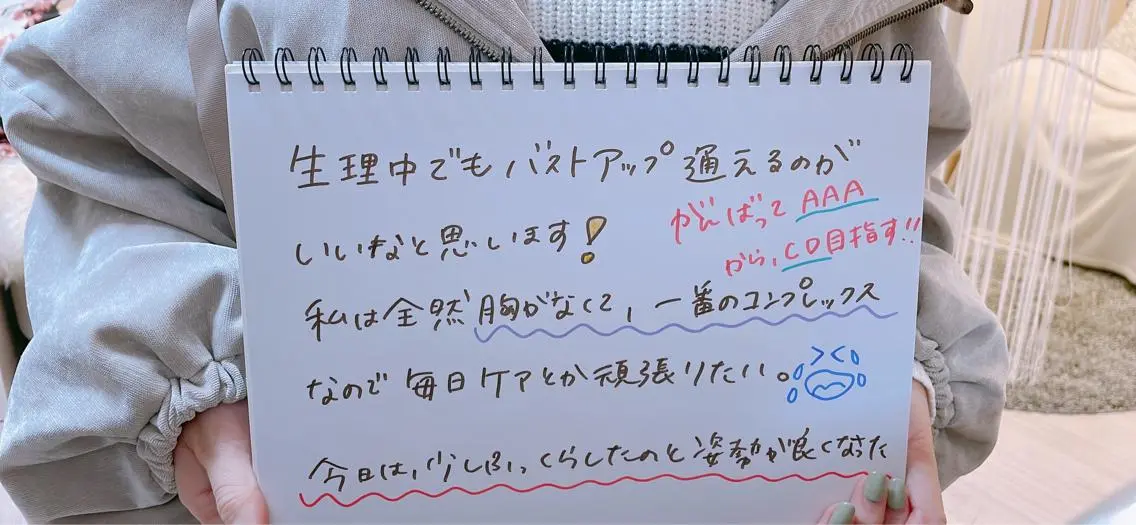 生理中でもバストアップ通えるのが
いいなと思います!
がんばってAAA
から、CD目指す!!
私は全然胸がなくて、一番のコンプレックス
なので毎日ケアとか頑張りたい。
今日は、少しふっくらしたのと姿勢が良くなった